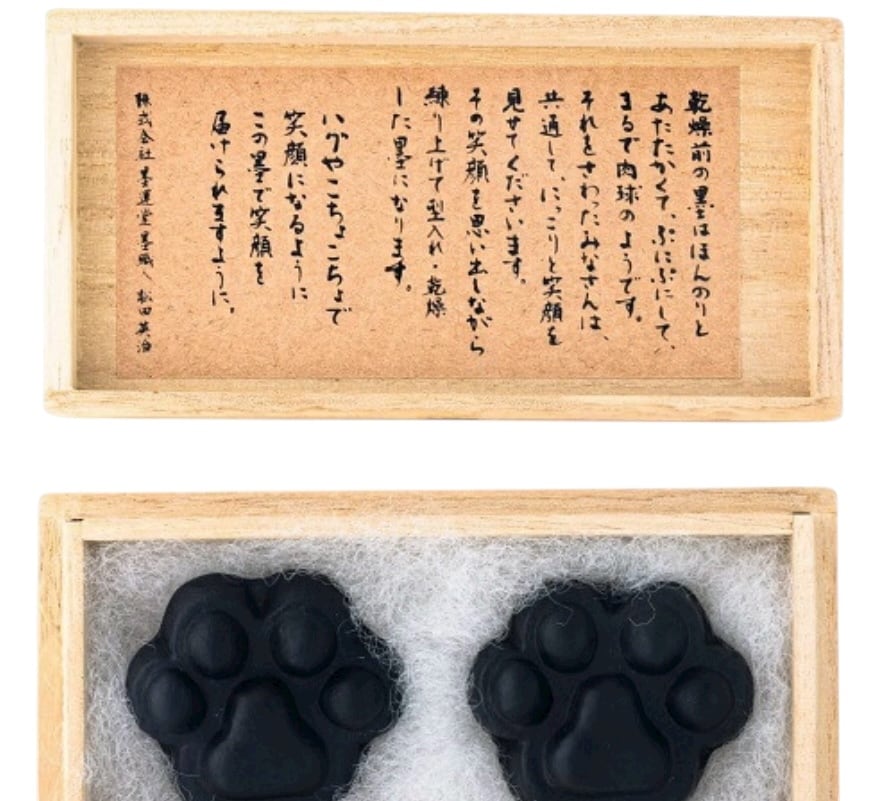 乾燥前の墨はほんのりと
あたたかくて、ぷにぷにして、
まるで肉球のようです。
それをさわったみなさんは、
共通して、にっこりと笑顔を
見せてくださいます。
その笑顔を思い出しながら
練り上げて型入れ・乾燥
した墨になります。
ハグやこちょこちょで
笑顔になるように
この墨で笑顔を
届けられますように。
株式会社 墨運堂 墨職人 松田英治